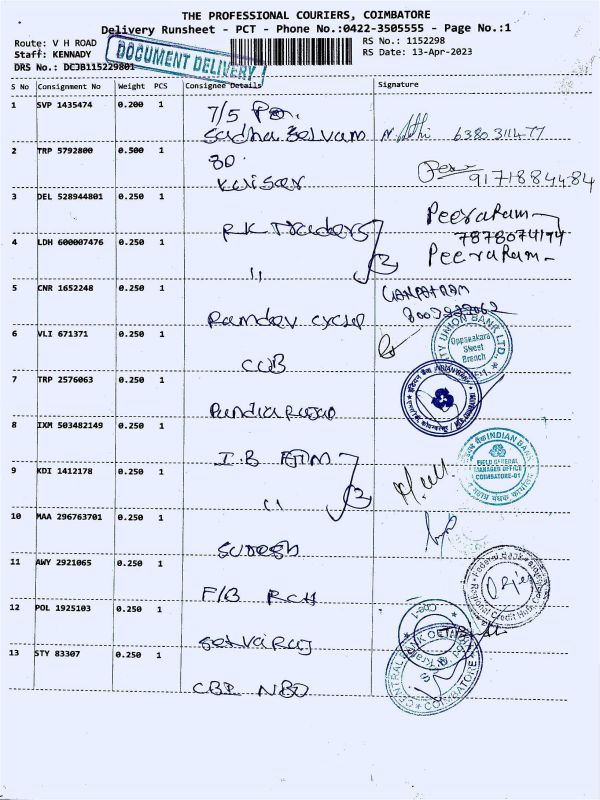 THE PROFESSIONAL COURIERS, COIMBATORE
Delivery Runsheet - PCT - Phone No.:0422-3505555 - Page No.:1
Route: V H ROAD
Staff: KENNADY
DRS No.: DCJB115229801
DOCUMENT DELIVERY
RS No.: 1152298
RS Date: 13-Apr-2023
S No Consignment No Weight PCS Consignee Details Signature
1 SVP 1435474 0.200 1
7/5
Sadha Selvam 6380311477
2 TRP 5792800 0.500 1
80.
Kaisar 9171884484
3 DEL 528944801 0.250 1
R.K Traders PeeraRam
7878074194
4 LDH 600007476 0.250 1
,, PeeraRam
5 CNR 1652248 0.250 1
GANPATRAM
Ramdev cycle
6 VLI 671371 0.250 1
CUB
CITY UNION BANK LTD.
Oppanakara Street Branch
7 TRP 2576063 0.250 1
Pandiarajan
INDIAN BANK
8 IXM 503482149 0.250 1
I.B ATM
INDIAN BANK
FIELD GENERAL MANAGER OFFICE
COIMBATORE-01
9 KDI 1412178 0.250 1
,,
10 MAA 296763701 0.250 1
Suresh
11 AWY 2921065 0.250 1
F/B RCH
Federal Bank
12 POL 1925103 0.250 1
Selvaraj
13 STY 83307 0.250 1
CBI NBO
CENTRAL
COIMBATORE